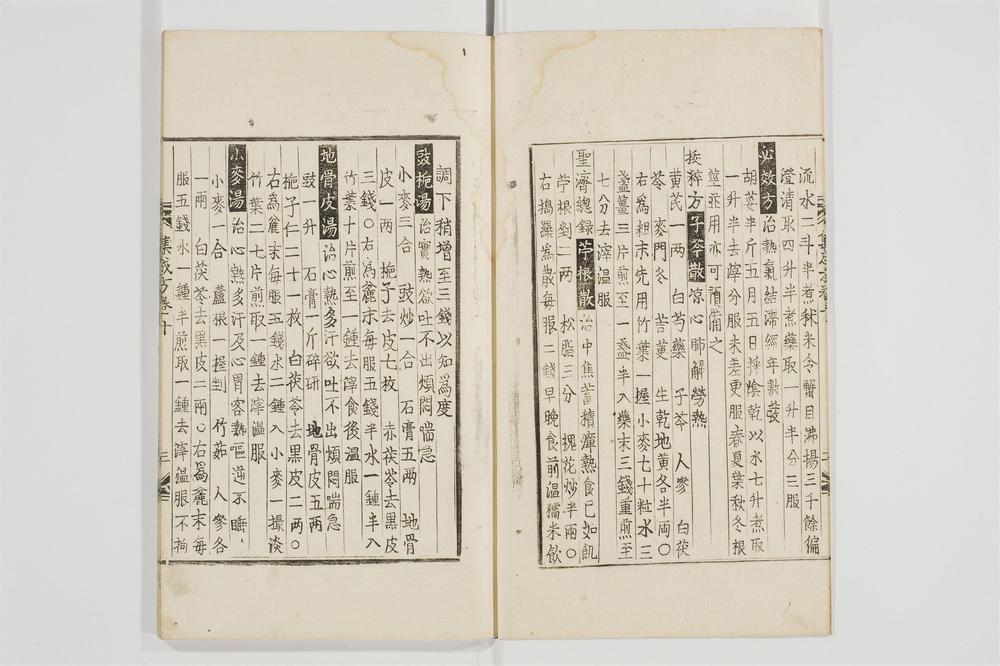 流水二斗半煮秫米令蟹目沸揚三千餘徧
澄清取四升半煮藥取一升半分三服
必效方 治熱氣結滯經年數發
胡荽半斤五月五日採陰乾以水七升煮取
一升半去滓分服未差更服春夏葉秋冬根
莖並用亦可預備之
揆粹方 子芩散 凉心肺解勞熱
黃芪一兩 白芍藥 子芩 人參 白茯
苓 麥門冬 苦茰 生乾地黃各半兩○
右爲粗末先用竹葉一握小麥七十粒水三
盞薑三片煎至一盞半入藥末三錢重煎至
七分去滓溫服
聖濟總録 苧根散 治中焦蓄積癉熱食已如飢
苧根剉二兩 松脂三分 槐花炒半兩○
右搗羅爲散每服二錢早晚食前温糯米飲
調下稍增至三錢以知爲度
豉梔湯 治實熱欲吐不出煩悶喘急
小麥三合 豉炒一合 石膏五兩 地骨
皮一兩 梔子去皮七枚 赤茯苓去黑皮
三錢○右爲麄末每服五錢半水一鍾半入
竹葉十片煎至一鍾去滓食後温服
地骨皮湯 治心熱多汗欲吐不出煩悶喘急
豉一升 石膏一斤碎研 地骨皮五兩
梔子仁二十一枚 白茯苓去黑皮二兩○
右爲麄末每服五錢水二鍾入小麥一撮淡
竹葉二七片煎取一鍾去滓溫服
小麥湯 治心熱多汗及心胃客熱嘔逆不睡
小麥一合 蘆根一握剉 竹茹 人參各
一兩 白茯苓去黑皮二兩○右爲麄末每
服五錢水一鍾半煎取一鍾去滓温服不拘
集成方卷二十 三